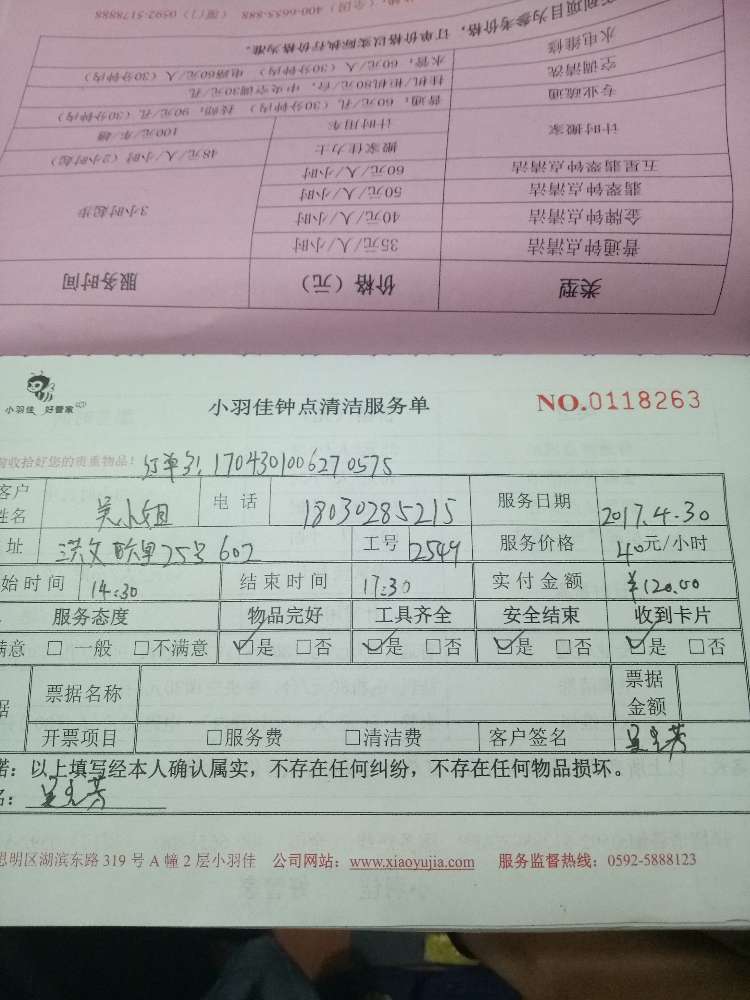 类型 价格（元） 服务时间
普通钟点清洁 35元/人/小时
金牌钟点清洁 40元/人/小时 3小时起步
翡翠钟点清洁 50元/人/小时
五星翡翠钟点清洁 60元/人/小时
计时搬家 搬家佳力士 48元/人/小时（2小时起）
计时用车 100元/车/趟
专业疏通 普通：60元/孔（30分钟内） 90元/孔（30分钟内）
空调清洗 挂机/柜机80元/台，中央空调30元/孔
水电维修 水管：60元/人（30分钟内） 电路60元/人（30分钟内）
项目为参考价格，订单价格以实际执行价格为准。
（全国）400-6655-888 （厦门）0592-5178888
小羽佳 好管家
小羽佳钟点清洁服务单 NO.0118263
收拾好您的贵重物品！ 订单号：1704301006270575
客户姓名 吴小姐 电话 18030285215 服务日期 2017.4.30
址 洪文 里25号602 工号 2549 服务价格 40元/小时
始时间 14:30 结束时间 17:30 实付金额 ￥120.00
服务态度 物品完好 工具齐全 安全结束 收到卡片
满意 □ 一般 □不满意 ☑是 □否 ☑是 □否 ☑是 □否 ☑是 □否
据 票据名称 票据金额
开票项目 □服务费 □清洁费 客户签名
诺：以上填写经本人确认属实，不存在任何纠纷，不存在任何物品损坏。
名：
思明区湖滨东路 319 号 A 幢 2 层小羽佳 公司网站：www.xiaoyujia.com 服务监督热线：0592-5888123